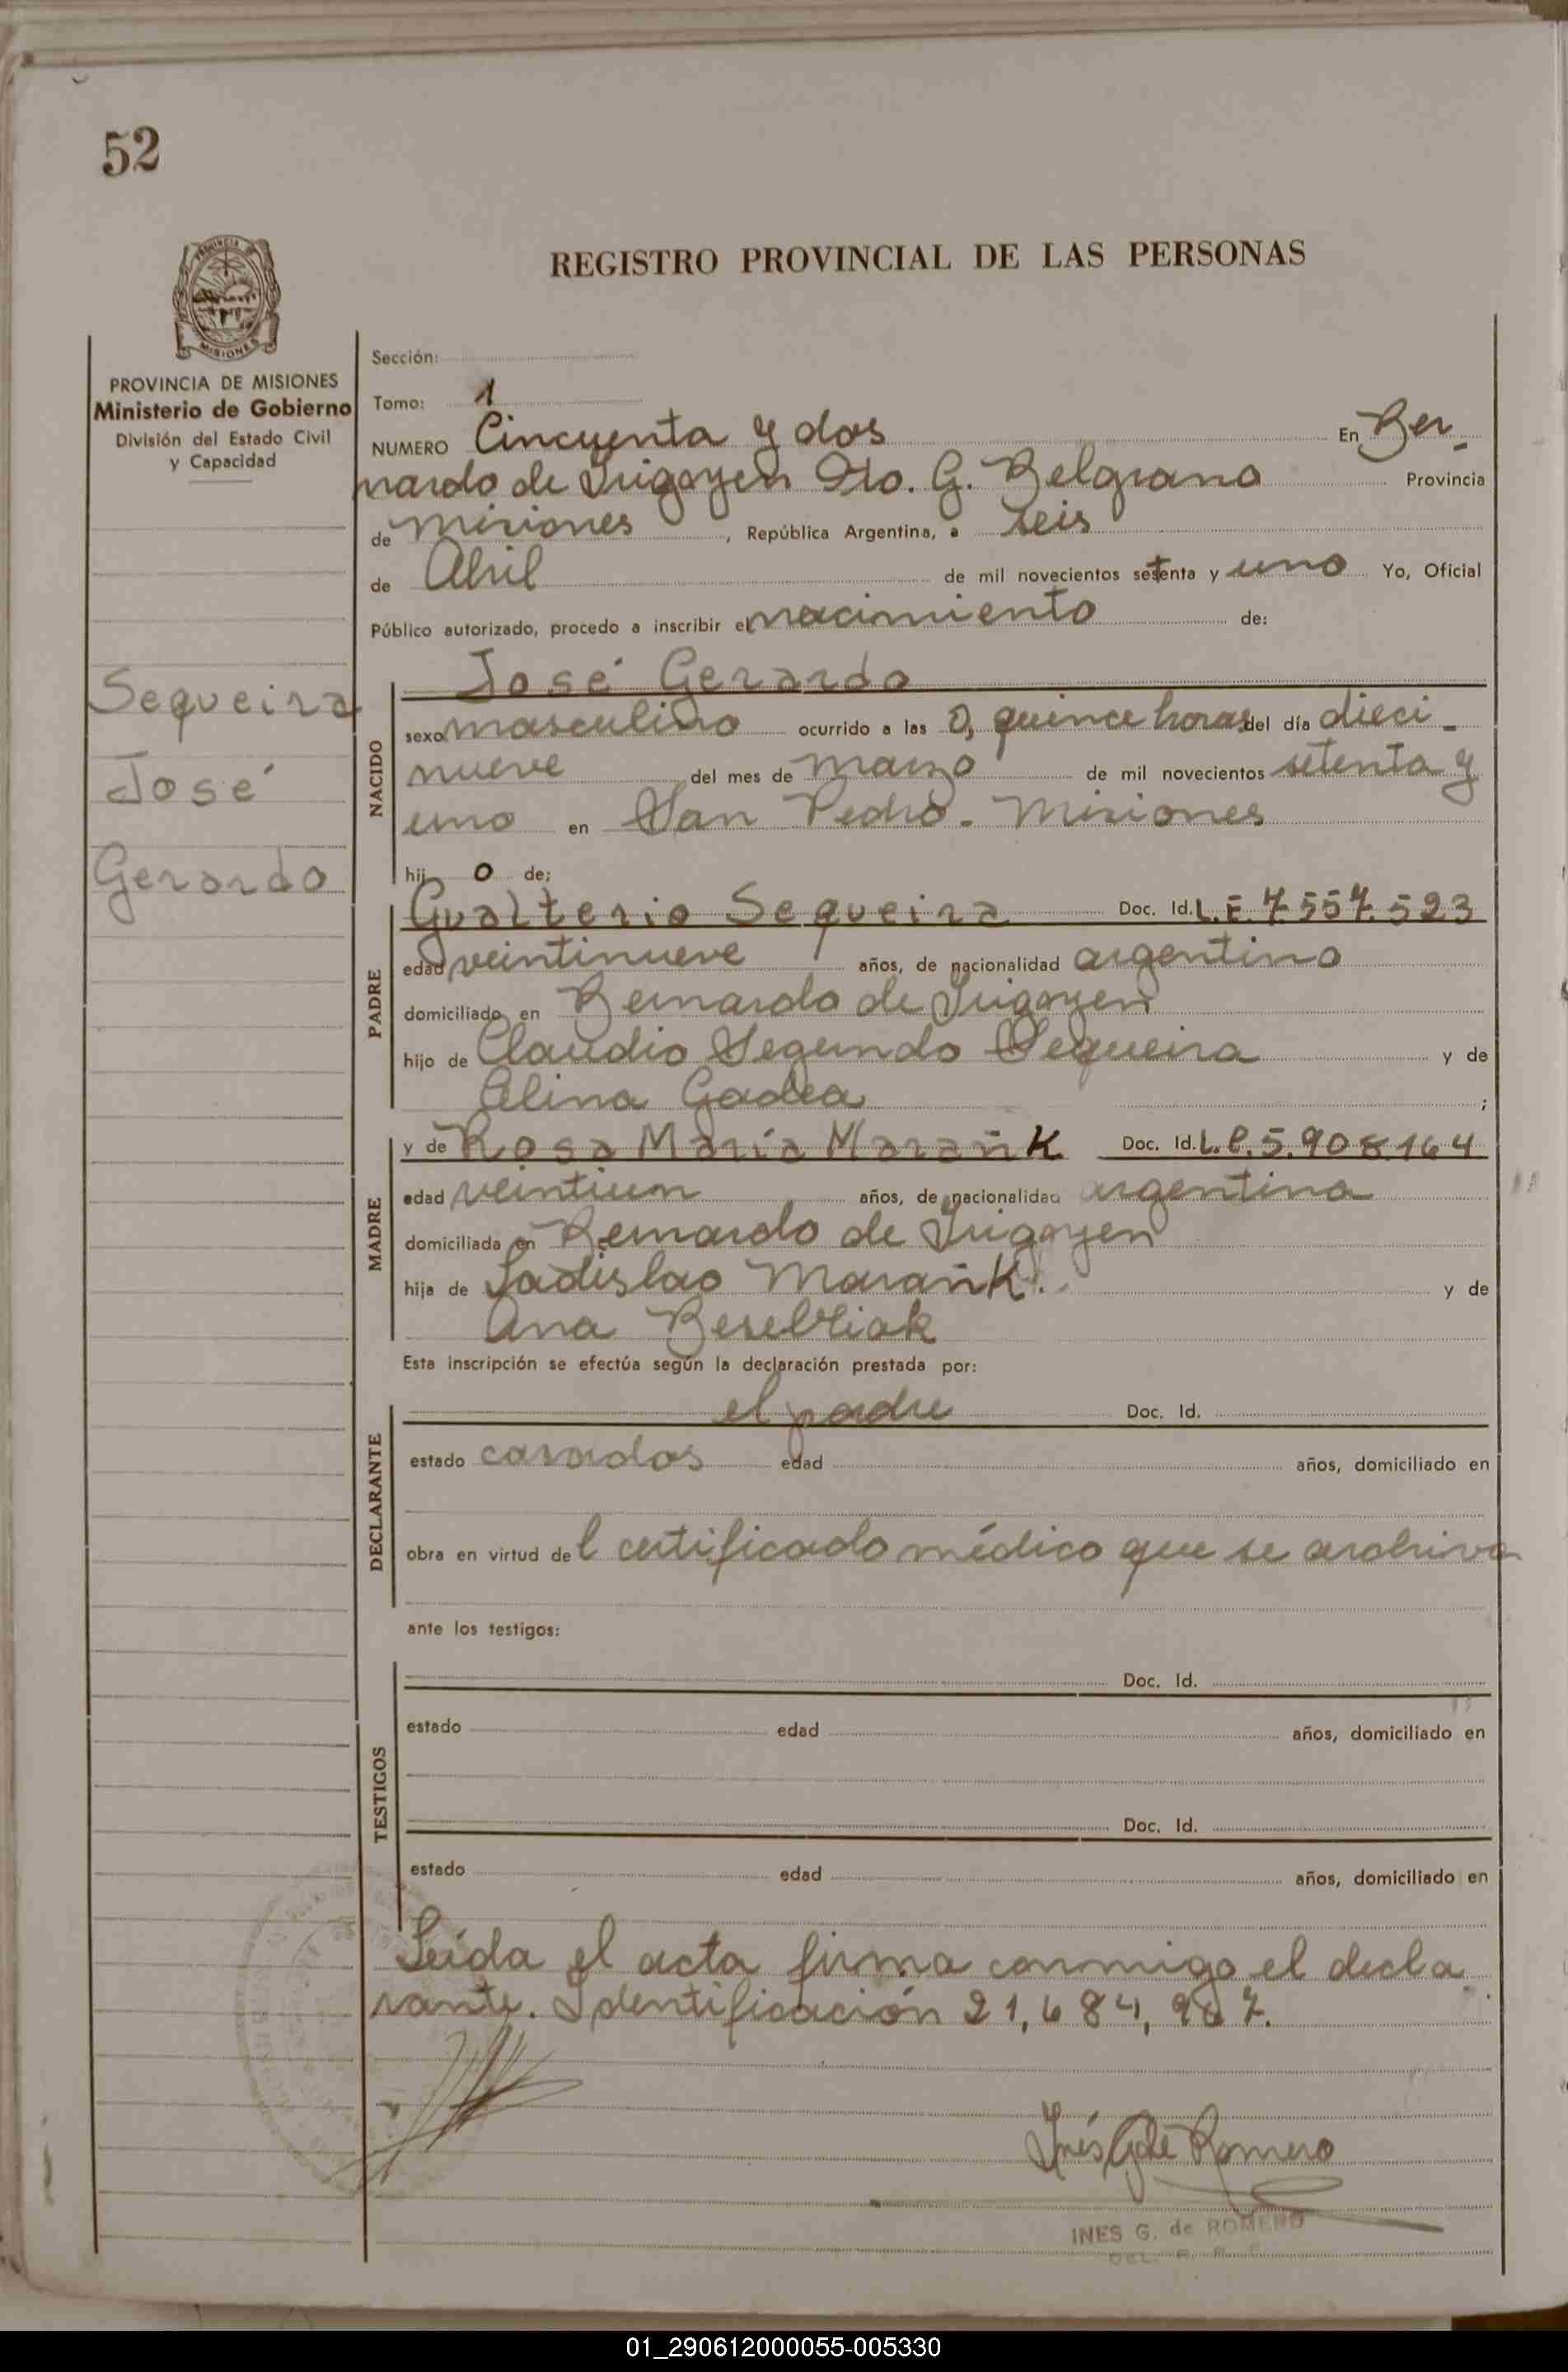 52
REGISTRO PROVINCIAL DE LAS PERSONAS
PROVINCIA
MISIONES
PROVINCIA DE MISIONES
Ministerio de Gobierno
División del Estado Civil
y Capacidad
Sequeira
José
Gerardo
Sección:
Tomo: 1
NUMERO Cincuenta y dos En Ber-
nardo de Irigoyen Dto. G. Belgrano Provincia
de Misiones, República Argentina, a seis
de Abril de mil novecientos setenta y uno Yo, Oficial
Público autorizado, procedo a inscribir el nacimiento de:
NACIDO
José Gerardo
sexo masculino ocurrido a las 0, quince horas del día dieci-
nueve del mes de marzo de mil novecientos setenta y
uno en San Pedro - Misiones
hij o de;
PADRE
Gualterio Sequeira Doc. Id. L.E. 7.557.523
edad veintinueve años, de nacionalidad argentino
domiciliado en Bernardo de Irigoyen
hijo de Claudio Segundo Sequeira y de
Celina Gadea ;
MADRE
y de Rosa María Marañk Doc. Id. L.C. 5.908.164
edad veintiun años, de nacionalidad argentina
domiciliada en Bernardo de Irigoyen
hija de Ladislao Marañk. y de
Ana
Esta inscripción se efectúa según la declaración prestada por:
DECLARANTE
el padre Doc. Id.
estado casados edad años, domiciliado en
obra en virtud del certificado médico que se archiva
ante los testigos:
TESTIGOS
Doc. Id.
estado edad años, domiciliado en
Doc. Id.
estado edad años, domiciliado en
Leída el acta firma conmigo el decla
rante. Identificación 21,684,967.
Inés G de Romero
INES G. de ROMERO
01_290612000055-005330